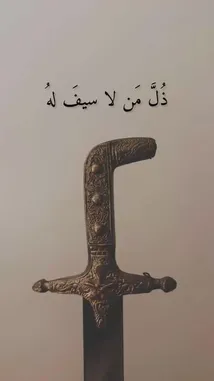 ذُلَّ مَن لا سيفَ لهُ